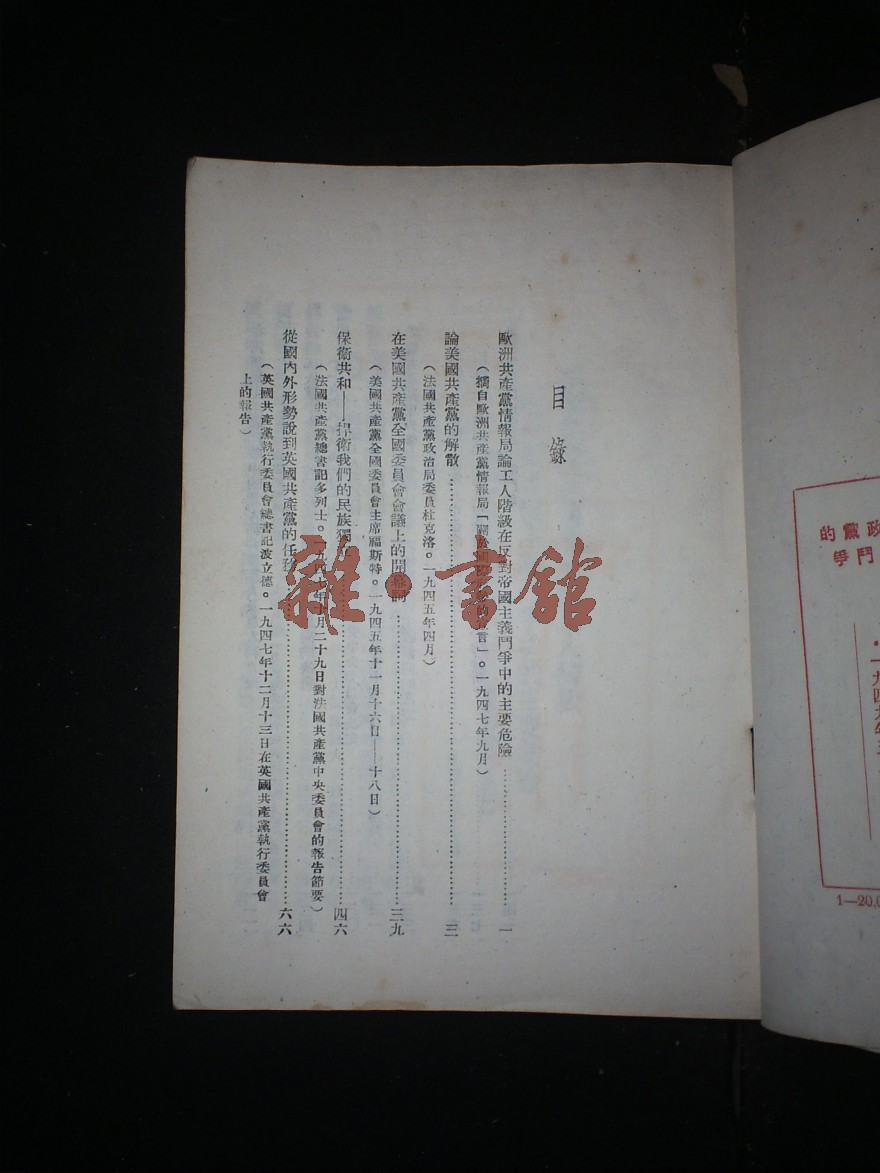 目錄
歐洲共產黨情報局論工人階級在反對帝國主義鬥爭中的主要危險……一
(摘自歐洲共產黨情報局「關於國際 的宣言」。一九四七年九月)
論美國共產黨的解散……三
(法國共產黨政治局委員杜克洛。一九四五年四月)
在美國共產黨全國委員會會議上的開幕詞……三九
(美國共產黨全國委員會主席福斯特。一九四五年十一月十六日——十八日)
保衛共和——捍衛我們的民族獨立……四六
(法國共產黨總書記多列士。一九四七年 月二十九日對法國共產黨中央委員會的報告節要)
從國內外形勢說到英國共產黨的任務……六六
(英國共產黨執行委員會總書記波立德。一九四七年十二月十三日在英國共產黨執行委員會
上的報告)
雜·書館
政黨的
鬥爭
一九四九年
1—20,0